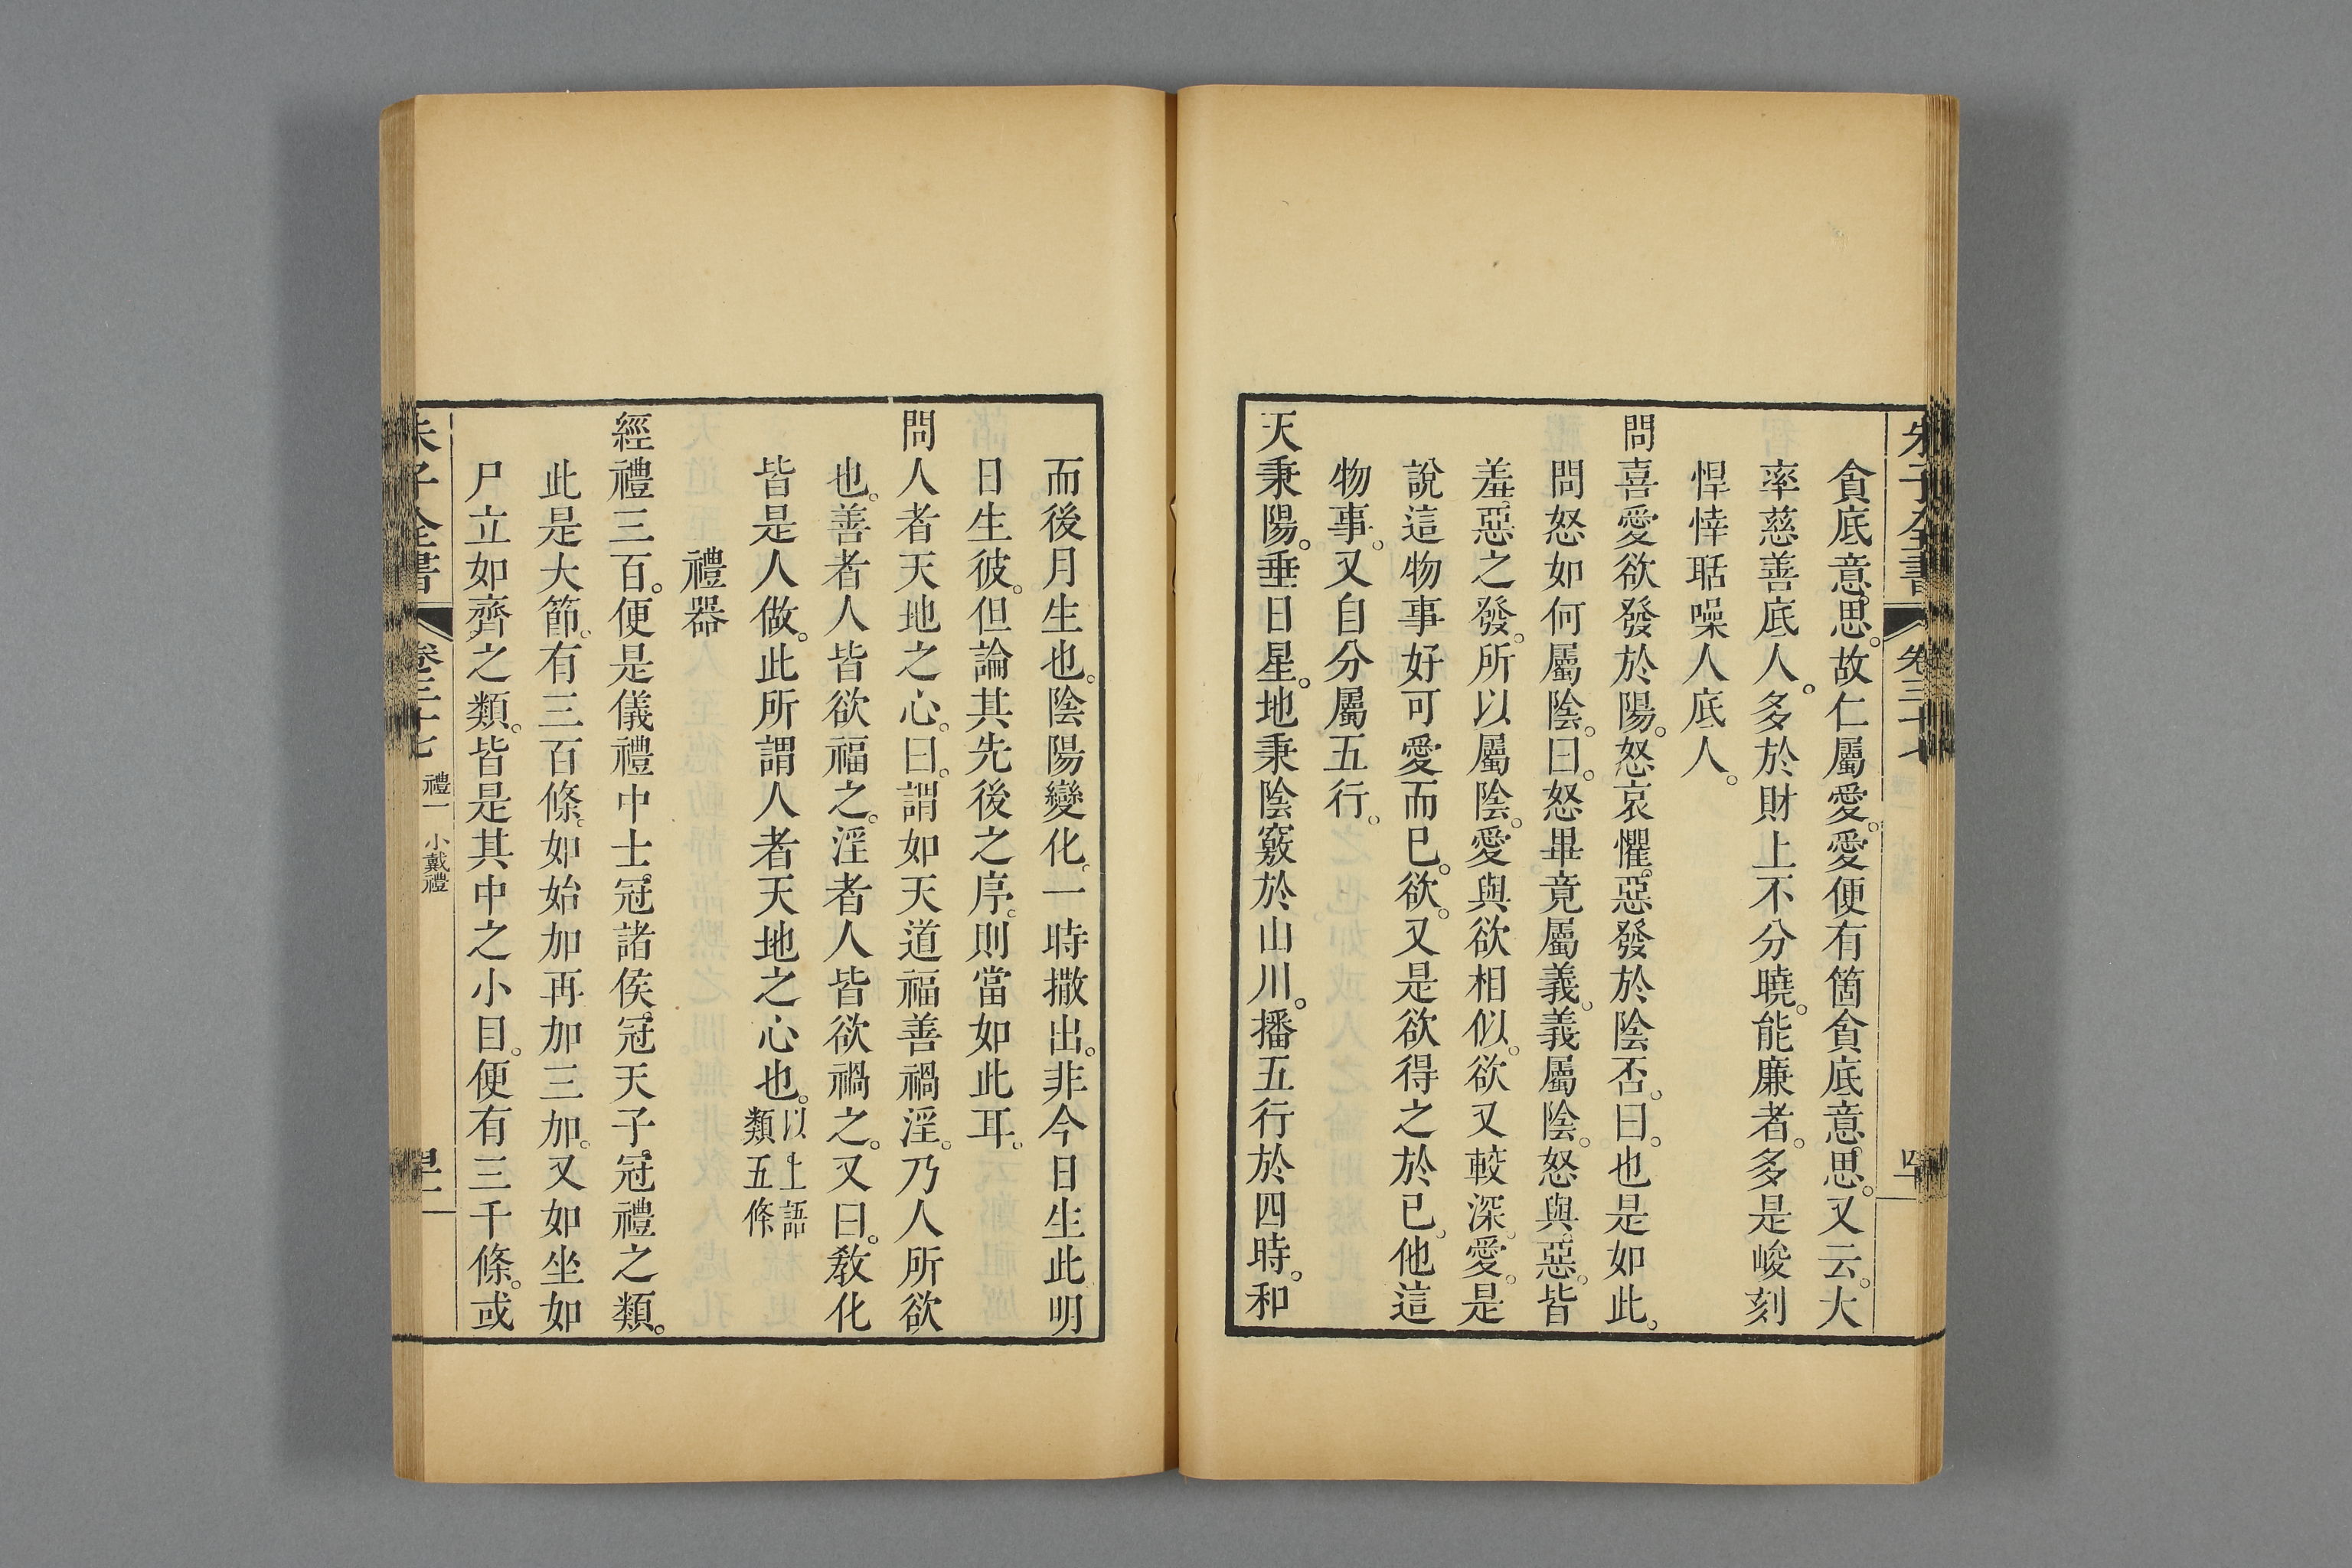 貪底意思。故仁屬愛。愛便有箇貪底意思。又云。大
率慈善底人。多於財上不分曉。能廉者。多是峻刻
悍悻聒噪人底人。
問喜愛欲發於陽。怒哀懼惡發於陰否。曰。也是如此。
問怒如何屬陰。曰。怒畢竟屬義。義屬陰。怒與惡。皆
羞惡之發。所以屬陰。愛與欲相似。欲又較深。愛。是
說這物事好可愛而已。欲。又是欲得之於已。他這
物事。又自分屬五行。
天秉陽。垂日星。地秉陰竅於山川。播五行於四時。和
而後月生也。陰陽變化。一時撒出。非今日生此明
日生彼。但論其先後之序。則當如此耳。
問人者天地之心。曰。謂如天道福善禍淫。乃人所欲
也。善者人皆欲福之。淫者人皆欲禍之。又曰。教化
皆是人做。此所謂人者天地之心也。以上語
類五條
禮器
經禮三百。便是儀禮中士冠諸侯冠天子冠禮之類。
此是大節。有三百條。如始加再加三加。又如坐如
尸立如齊之類。皆是其中之小目。便有三千條。或
朱子全書 卷三十七 禮一 小戴禮